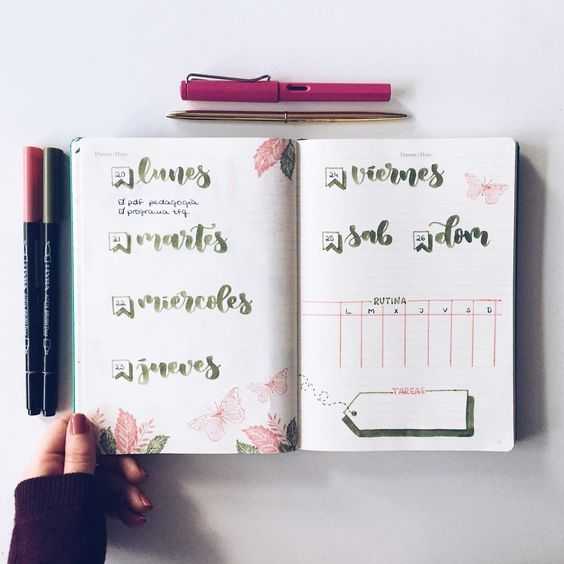 20 lunes
pdf pedagogía
programa tfg
21 martes
22 miércoles
23 jueves
24 viernes
25 sab
26 dom
RUTINA
L M X J V S D
TAREAS